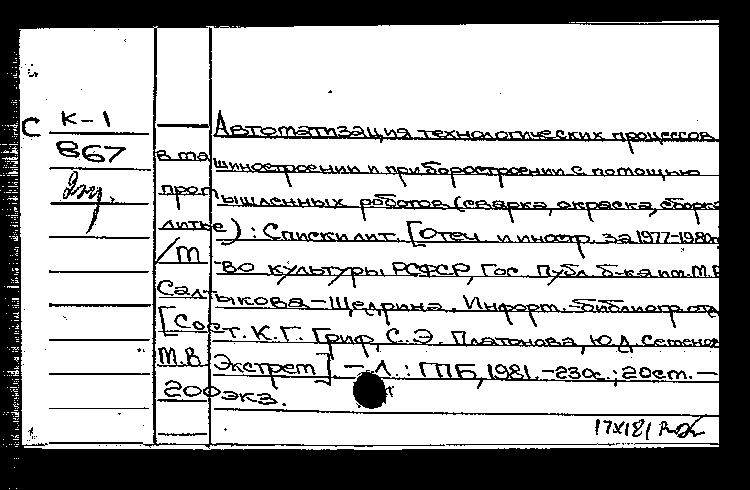 С К-1
Автоматизация технологических процессов
867
в машиностроении и приборостроении с помощью
промышленных роботов (сварка, окраска, сборка
литье) : Списки лит. [Отеч. и иностр. за 1977-1980гг
/М-во культуры РСФСР, Гос. Публ. б-ка им. М.Е
Салтыкова-Щедрина. Информ.-библиогр. отд
[Сост. К.Г. Гриф, С.Э. Платонова, Ю.Д. Семенов
М.В. Экстрем]. - Л. : ГПБ, 1981. -230с.; 20см. -
200экз.
17XI81